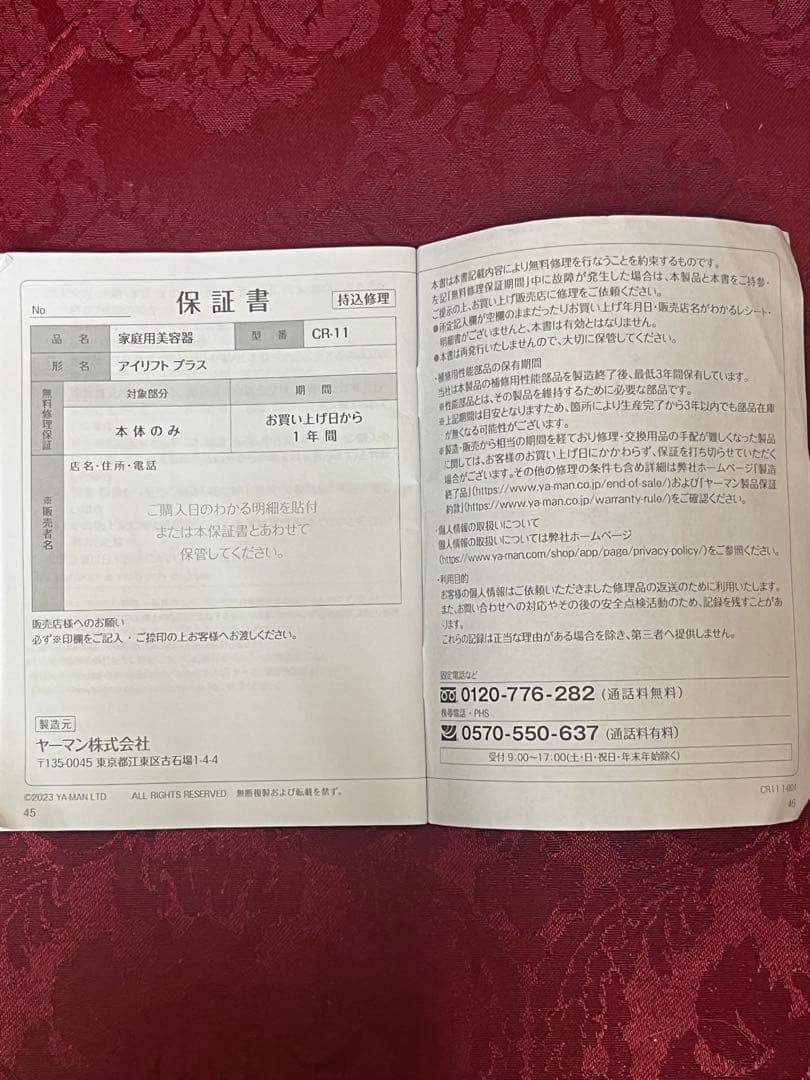 No.
保証書
持込修理
品 名 家庭用美容器 型 番 CR-11
形 名 アイリフト プラス
無料修理保証
対象部分 期 間
本体のみ お買い上げ日から
1年間
※販売者名
店名・住所・電話
ご購入日のわかる明細を貼付
または本保証書とあわせて
保管してください。
販売店様へのお願い
必ず※印欄をご記入・ご捺印の上お客様へお渡しください。
製造元
ヤーマン株式会社
〒135-0045 東京都江東区古石場1-4-4
©2023 YA-MAN LTD. ALL RIGHTS RESERVED. 無断複製および転載を禁ず。
45
本書は本書記載内容により無料修理を行なうことを約束するものです。
左記「無料修理保証期間」中に故障が発生した場合は、本製品と本書をご持参・
ご提示の上、お買い上げ販売店に修理をご依頼ください。
●所定記入欄が空欄のままだったりお買い上げ年月日・販売店名がわかるレシート・
明細書がございませんと、本書は有効とはなりません。
●本書は再発行いたしませんので、大切に保管してください。
・補修用性能部品の保有期間
当社は本製品の補修用性能部品を製造終了後、最低3年間保有しています。
※性能部品とは、その製品を維持するために必要な部品です。
※上記期間は目安となりますため、箇所により生産完了から3年以内でも部品在庫
が無くなる可能性がございます。
※製造・販売から相当の期間を経ており修理・交換用品の手配が難しくなった製品
に関しては、お客様のお買い上げ日にかかわらず、保証を打ち切らせていただく
場合がございます。その他の修理の条件も含め詳細は弊社ホームページ「製造
終了品」(https://www.ya-man.co.jp/end-of-sale/)および「ヤーマン製品保証
約款」(https://www.ya-man.co.jp/warranty-rule/)をご確認ください。
・個人情報の取扱いについて
個人情報の取扱いについては弊社ホームページ
(https://www.ya-man.com/shop/app/page/privacy-policy/)をご参照ください。
・利用目的
お客様の個人情報はご依頼いただきました修理品の返送のために利用いたします。
また、お問い合わせへの対応やその後の安全点検活動のため、記録を残すことがあ
ります。
これらの記録は正当な理由がある場合を除き、第三者へ提供しません。
固定電話など
0120-776-282(通話料無料)
携帯電話・PHS
0570-550-637(通話料有料)
受付 9:00~17:00(土・日・祝日・年末年始除く)
CR11-1-001
46